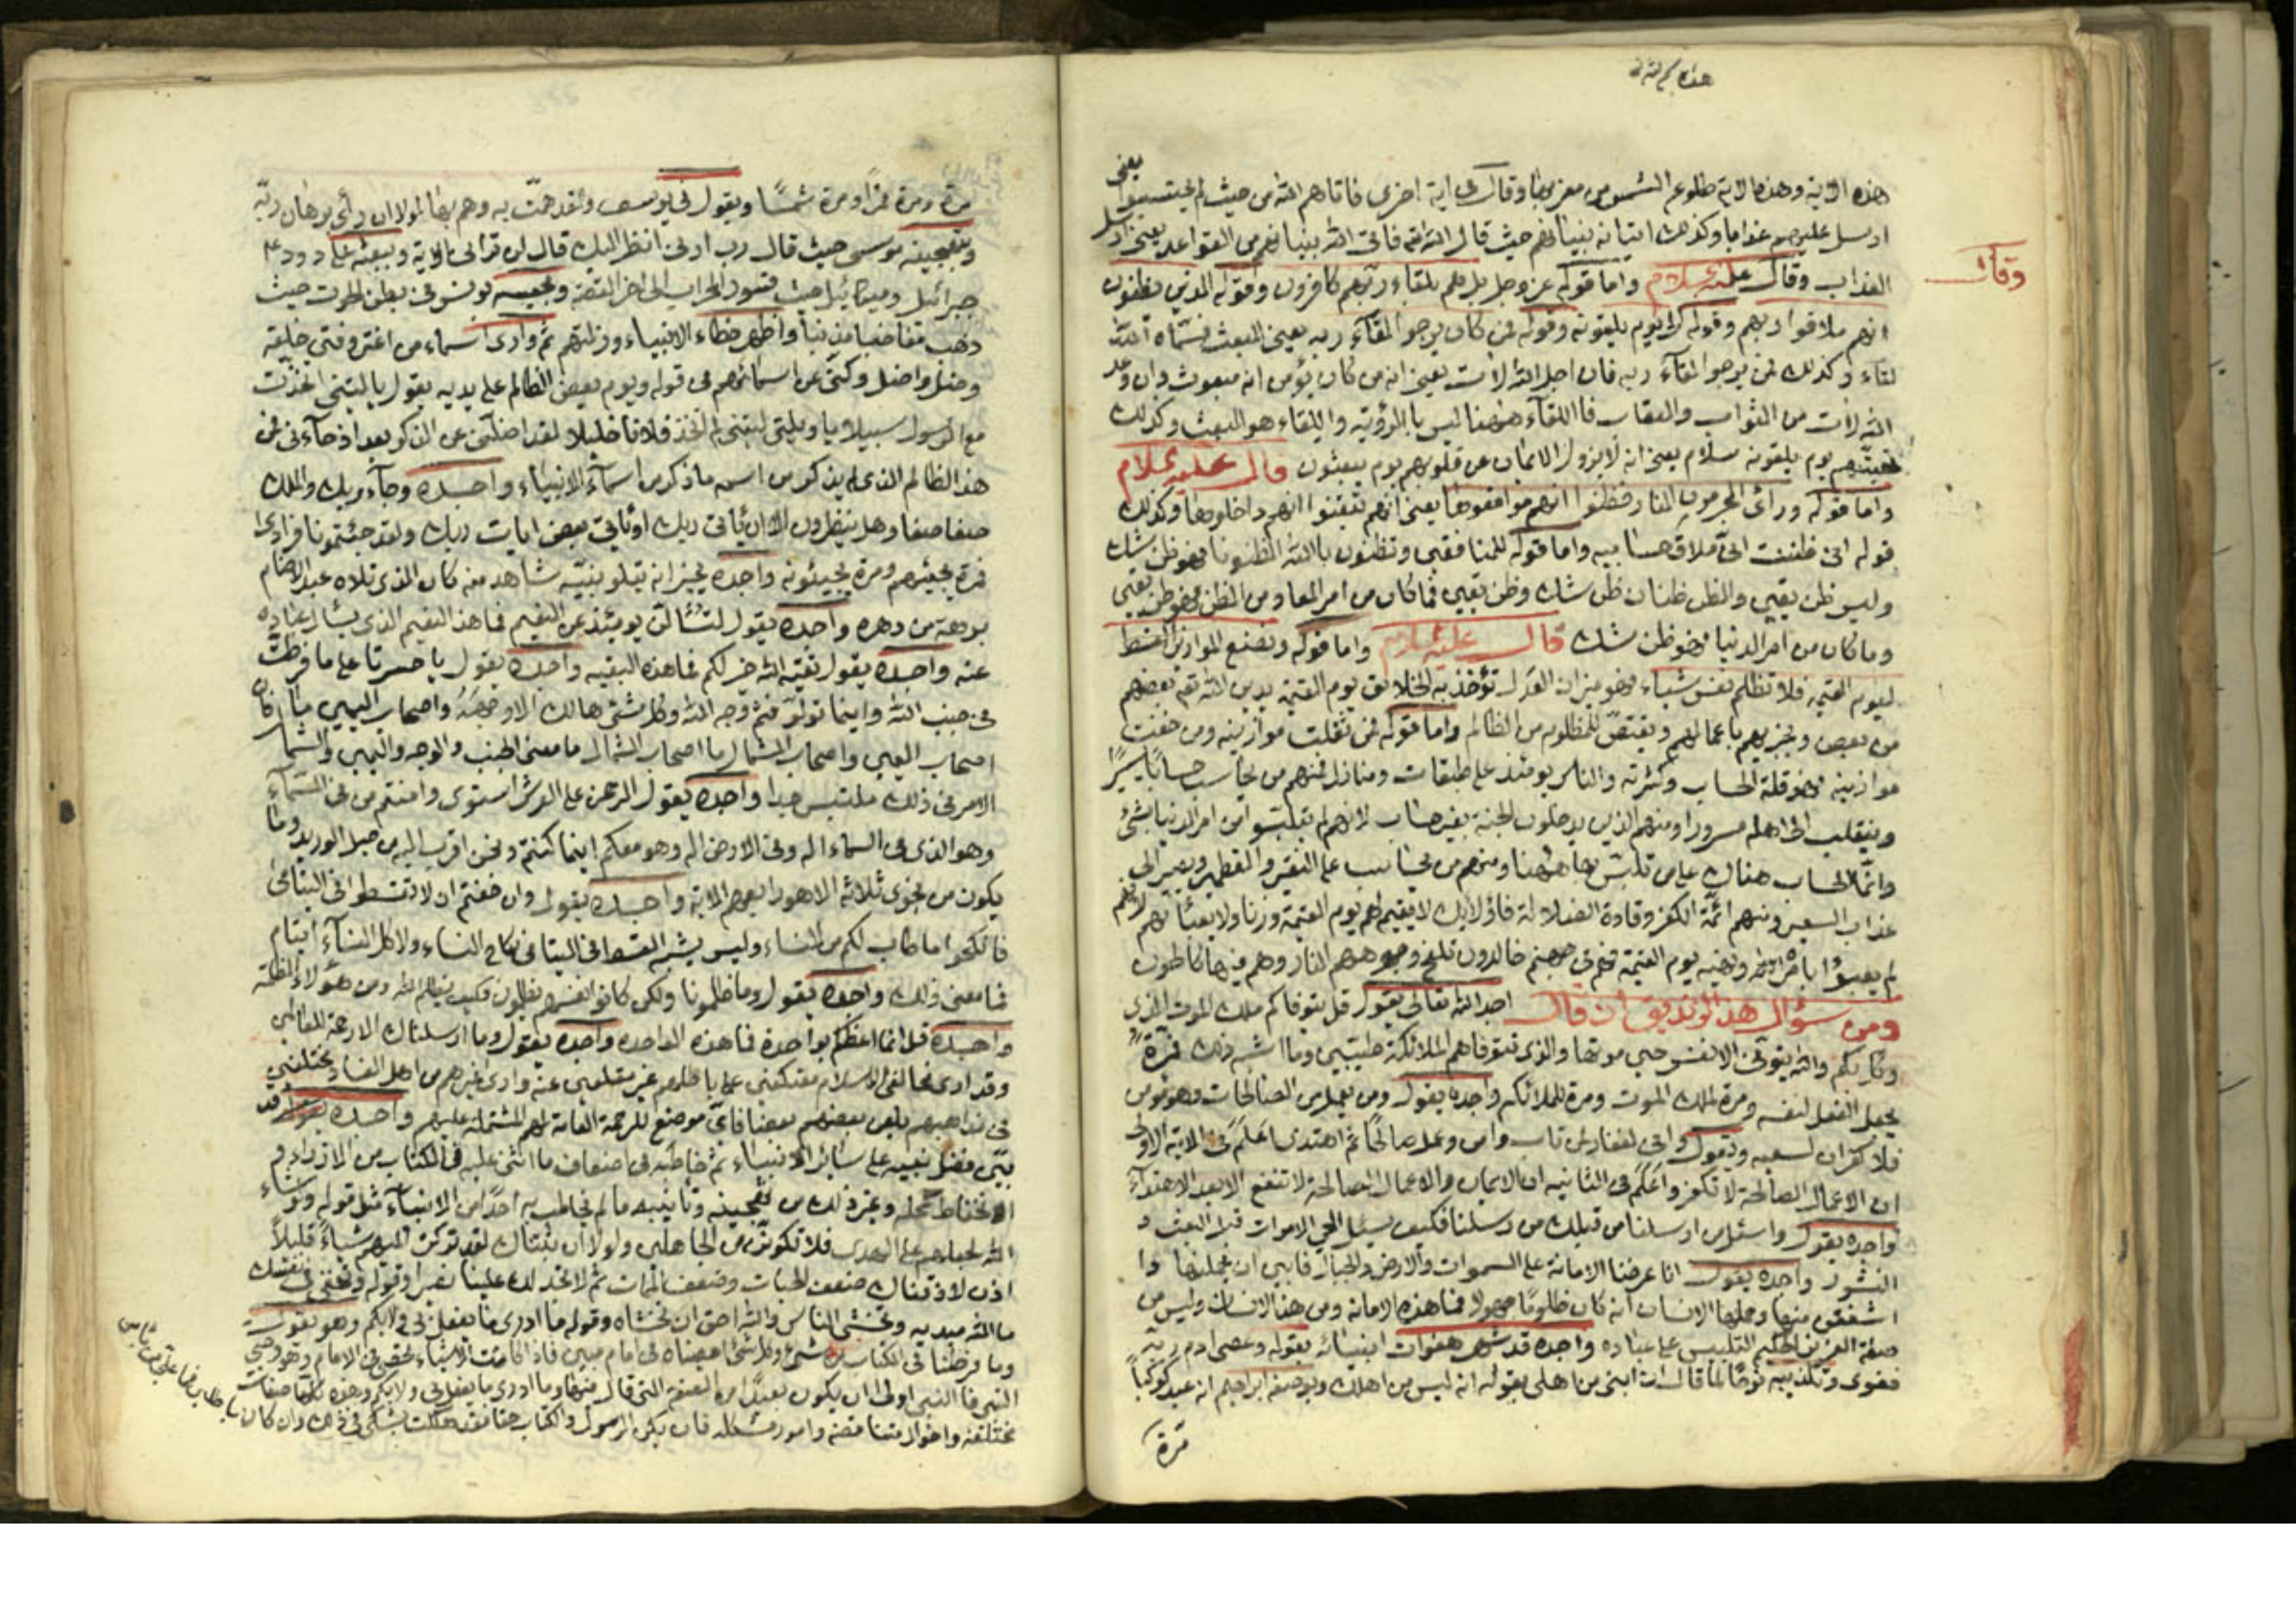 هذه الآية وهذه الآية طلوع الشمس من مغربها وقال فى آية اخرى فاتاهم الله من حيث لم يحتسبوا يعنى
ارسل عليهم عذابا وكذلك اتيانه بنيانهم حيث قال الله فاتى الله بنيانهم من القواعد يعنى ارسل
وقال
العذاب وقال عليه السلام واما قوله عز وجل بل هم بلقاء ربهم كافرون وقوله الذين يظنون
انهم ملاقوا ربهم وقوله الى يوم يلقونه وقوله فمن كان يرجوا لقاء ربه يعنى البعث فسماه الله
لقاء وكذلك من يرجوا لقاء ربه فان اجل الله لات يعنى انه من كان يؤمن انه مبعوث وان وعد
الله لات من الثواب والعقاب فاللقاء ههنا ليس بالرؤية واللقاء هو البعث وكذلك
تحيتهم يوم يلقونه سلام يعنى انه لا يزول الايمان عن قلوبهم يوم يبعثون قال عليه السلام
واما قوله ورأى المجرمون النار فظنوا انهم مواقعوها يعنى انهم تيقنوا انهم داخلوها وكذلك
قوله انى ظننت انى ملاق حسابيه واما قوله للمنافقين وتظنون بالله الظنونا فهو ظن شك
وليس ظن يقين والظن ظنان ظن شك وظن يقين فما كان من امر المعاد من الظن فهو ظن يقين
وما كان من امر الدنيا فهو ظن شك قال عليه السلام واما قوله ونضع الموازين القسط
ليوم القيمة فلا تظلم نفس شيئا فهو ميزان العدل تؤخذ به الخلايق يوم القيمة يدين الله تعم بعضهم
من بعض ويجزيهم باعمالهم ويقتص للمظلوم من الظالم واما قوله فمن ثقلت موازينه ومن خفت
موازينه فهو قلة الحساب وكثرته والناس يومئذ على طبقات ومنازل فمنهم من يحاسب حسابا يسيرا
وينقلب الى اهله مسرورا ومنهم الذين يدخلون الجنة بغير حساب لانهم لم يتلبسوا من امر الدنيا بشئ
وانما الحساب هناك على من تلبس بها ههنا ومنهم من يحاسب على النقير والقطمير ويصير الى
عذاب السعير ومنهم ائمة الكفر وقادة الضلالة فاولئك لا يقيم لهم يوم القيمة وزنا ولا يعبأ بهم لانهم
لم يعبؤا بامره ونهيه يوم القيمة فهم فى جهنم خالدون تلفح وجوههم النار وهم فيها كالحون
ومن سؤال هذا الزنديق ان قال اجد الله تعالى يقول قل يتوفاكم ملك الموت الذى
وكل بكم والله يتوفى الانفس حين موتها والذين تتوفاهم الملائكة طيبين وما اشبه ذلك فمرة
يجعل الفعل لنفسه ومرة لملك الموت ومرة للملائكة واجده يقول ومن يعمل من الصالحات وهو مؤمن
فلا كفران لسعيه ويقول وانى لغفار لمن تاب وامن وعمل صالحا ثم اهتدى اعلم فى الاية الاولى
ان الاعمال الصالحة لا تكفر واعلم فى الثانيه ان الايمان والاعمال الصالحة لا تنفع الا بعد الاهتداء
واجده يقول واسئل من ارسلنا من قبلك من رسلنا فكيف يسئل الحى الاموات قبل البعث و
النشور واجده يقول انا عرضنا الامانة على السموات والارض والجبال فابين ان يحملنها وا
اشفقن منها وحملها الانسان انه كان ظلوما جهولا فما هذه الامانة ومن هذا الانسان وليس من
صفة العزيز الحكيم التلبيس على عباده واجده قد شهر هفوات انبيائه بقوله وعصى ادم ربه
فغوى وتكذيبه نوحا لما قال ان ابنى من اهلى بقوله انه ليس من اهلك وبوصفه ابراهيم انه عبد كوكبا
مرة
مرة ومرة قمرا ومرة شمسا وبقوله فى يوسف ولقد همت به وهم بها لولا ان رأى برهان ربه
وبتهجينه موسى حيث قال رب ارنى انظر اليك قال لن ترانى الاية وببعثه على داود
جبرائيل وميكائيل حيث تسوروا المحراب الى اخر القصة وبحبسه يونس فى بطن الحوت حيث
ذهب مغاضبا مذنبا واظهر خطاء الانبياء وزللهم ثم وارى اسماء من اغتر وفتن خلقه
وضل واضل وكنى عن اسمائهم فى قوله ويوم يعض الظالم على يديه يقول يا ليتنى اتخذت
مع الرسول سبيلا يا ويلتى ليتنى لم اتخذ فلانا خليلا لقد اضلنى عن الذكر بعد اذ جاءنى فمن
هذا الظالم الذى لم يذكر من اسمه ما ذكر من اسماء الانبياء واجده وجاء ربك والملك
صفا صفا وهل ينظرون الا ان يأتى ربك او ياتى بعض ايات ربك ولقد جئتمونا فرادى
فمرة يجيئهم ومرة يجيئونه واجده يخبر انه يتلو نبيه شاهد منه كان الذى تلاه عبد الاصنام
برهة من دهره واجده يقول لتسئلن يومئذ عن النعيم فما هذا النعيم الذى يسأل عباده
عنه واجده يقول بقية الله خير لكم فما هذه البقيه واجده يقول يا حسرتا على ما فرطت
فى جنب الله واينما تولوا فثم وجه الله وكل شئ هالك الا وجهه واصحاب اليمين ما
اصحاب اليمين واصحاب الشمال ما اصحاب الشمال ما معنى الجنب والوجه واليمين والشمال فان
الامر فى ذلك ملتبس جدا واجده يقول الرحمن على العرش استوى وامنتم من فى السماء
وهو الذى فى السماء اله وفى الارض اله وهو معكم اينما كنتم ونحن اقرب اليه من حبل الوريد وما
يكون من نجوى ثلاثة الا هو رابعهم الاية واجده يقول وان خفتم ان لا تقسطوا فى اليتامى
فانكحوا ما طاب لكم من النساء وليس يشبه القسط فى اليتامى نكاح النساء ولا كل النساء ايتام
فما معنى ذلك واجده يقول وما ظلمونا ولكن كانوا انفسهم يظلمون فكيف يظلم الله ومن هؤلاء الظلمة
واجده قل انما اعظكم بواحدة فما هذه الواحده واجده يقول وما ارسلناك الا رحمة للعالمين
وقد ارى مخالفى الاسلام معتكفين على باطلهم غير مقلعين عنه وارى غيرهم من اهل الفساد مختلفين
فى مذاهبهم يلعن بعضهم بعضا فاى موضع للرحمة العامة لهم المشتملة عليهم واجده يقول قد
بين فضل نبيه على سائر الانبياء ثم خاطبه فى اضعاف ما اثنى عليه فى الكتاب من الازراء و
انخفاض محله وغير ذلك من تهجينه وتأنيبه ما لم يخاطب به احدا من الانبياء مثل قوله ولو شاء
الله لجمعهم على الهدى فلا تكونن من الجاهلين ولولا ان ثبتناك لقد كدت تركن اليهم شيئا قليلا
اذن لاذقناك ضعف الحيات وضعف الممات ثم لا تجد لك علينا نصيرا وقوله وتخفى فى نفسك
ما الله مبديه وتخشى الناس والله احق ان تخشاه وقوله ما ادرى ما يفعل بى ولا بكم وهو يقول
وما فرطنا فى الكتاب من شئ وكل شئ احصيناه فى امام مبين فاذا كانت الاشياء تحصى فى الامام وهو وصى
النبى فالنبى اولى ان يكون بعيدا من الصفة التى قال فيها وما ادرى ما يفعل بى ولا بكم وهذه كلها صفات
مختلفه واحوال متناقضه وامور مشكله فان يكن الرسول والكتاب حقا فقد هلكت بشكى فى ذلك وان كان